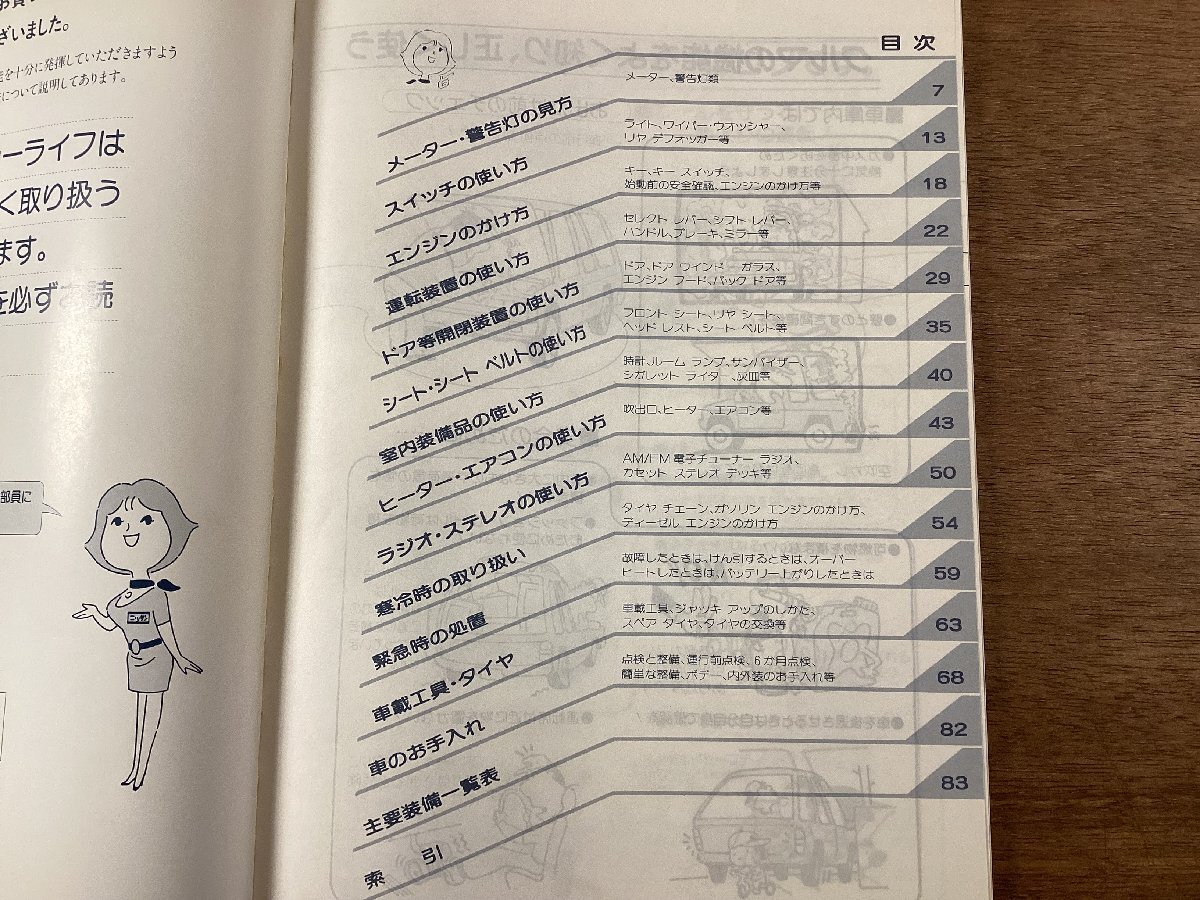 ざいました。
を十分に発揮していただきますよう
について説明してあります。
ーライフは
く取り扱う
ます。
を必ずお読
部員に
目次
メーター・警告灯の見方
メーター、警告灯類
7
スイッチの使い方
ライト、ワイパー・ウオッシャー、
リヤ デフォッガー等
13
エンジンのかけ方
キー、キー スイッチ、
始動前の安全確認、エンジンのかけ方等
18
運転装置の使い方
セレクト レバー、シフト レバー、
ハンドル、ブレーキ、ミラー等
22
ドア等開閉装置の使い方
ドア、ドア ウインドー ガラス、
エンジン フード、バック ドア等
29
シート・シート ベルトの使い方
フロント シート、リヤ シート、
ヘッド レスト、シート ベルト等
35
室内装備品の使い方
時計、ルーム ランプ、サンバイザー、
シガレット ライター、灰皿等
40
ヒーター・エアコンの使い方
吹出口、ヒーター、エアコン等
43
ラジオ・ステレオの使い方
AM/FM 電子チューナー ラジオ、
カセット ステレオ デッキ等
50
寒冷時の取り扱い
タイヤ チェーン、ガソリン エンジンのかけ方、
ディーゼル エンジンのかけ方
54
緊急時の処置
故障したときは、けん引するときは、オーバー
ヒートしたときは、バッテリー上がりしたときは
59
車載工具・タイヤ
車載工具、ジャッキ アップのしかた、
スペア タイヤ、タイヤの交換等
63
車のお手入れ
点検と整備、運行前点検、6か月点検、
簡単な整備、ボデー、内外装のお手入れ等
68
主要装備一覧表
82
索引
83